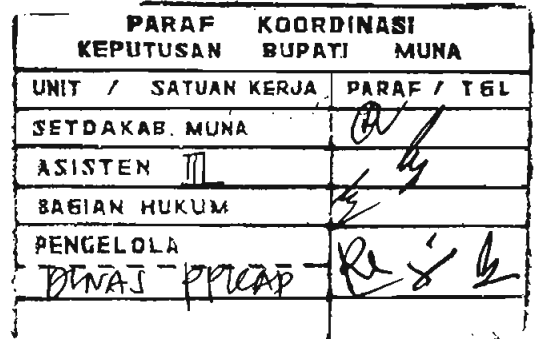 PARAF KOORDINASI
KEPUTUSAN BUPATI MUNA
UNIT / SATUAN KERJA PARAF / TGL
SETDAKAB. MUNA
ASISTEN III
BAGIAN HUKUM
PENGELOLA
DINAS